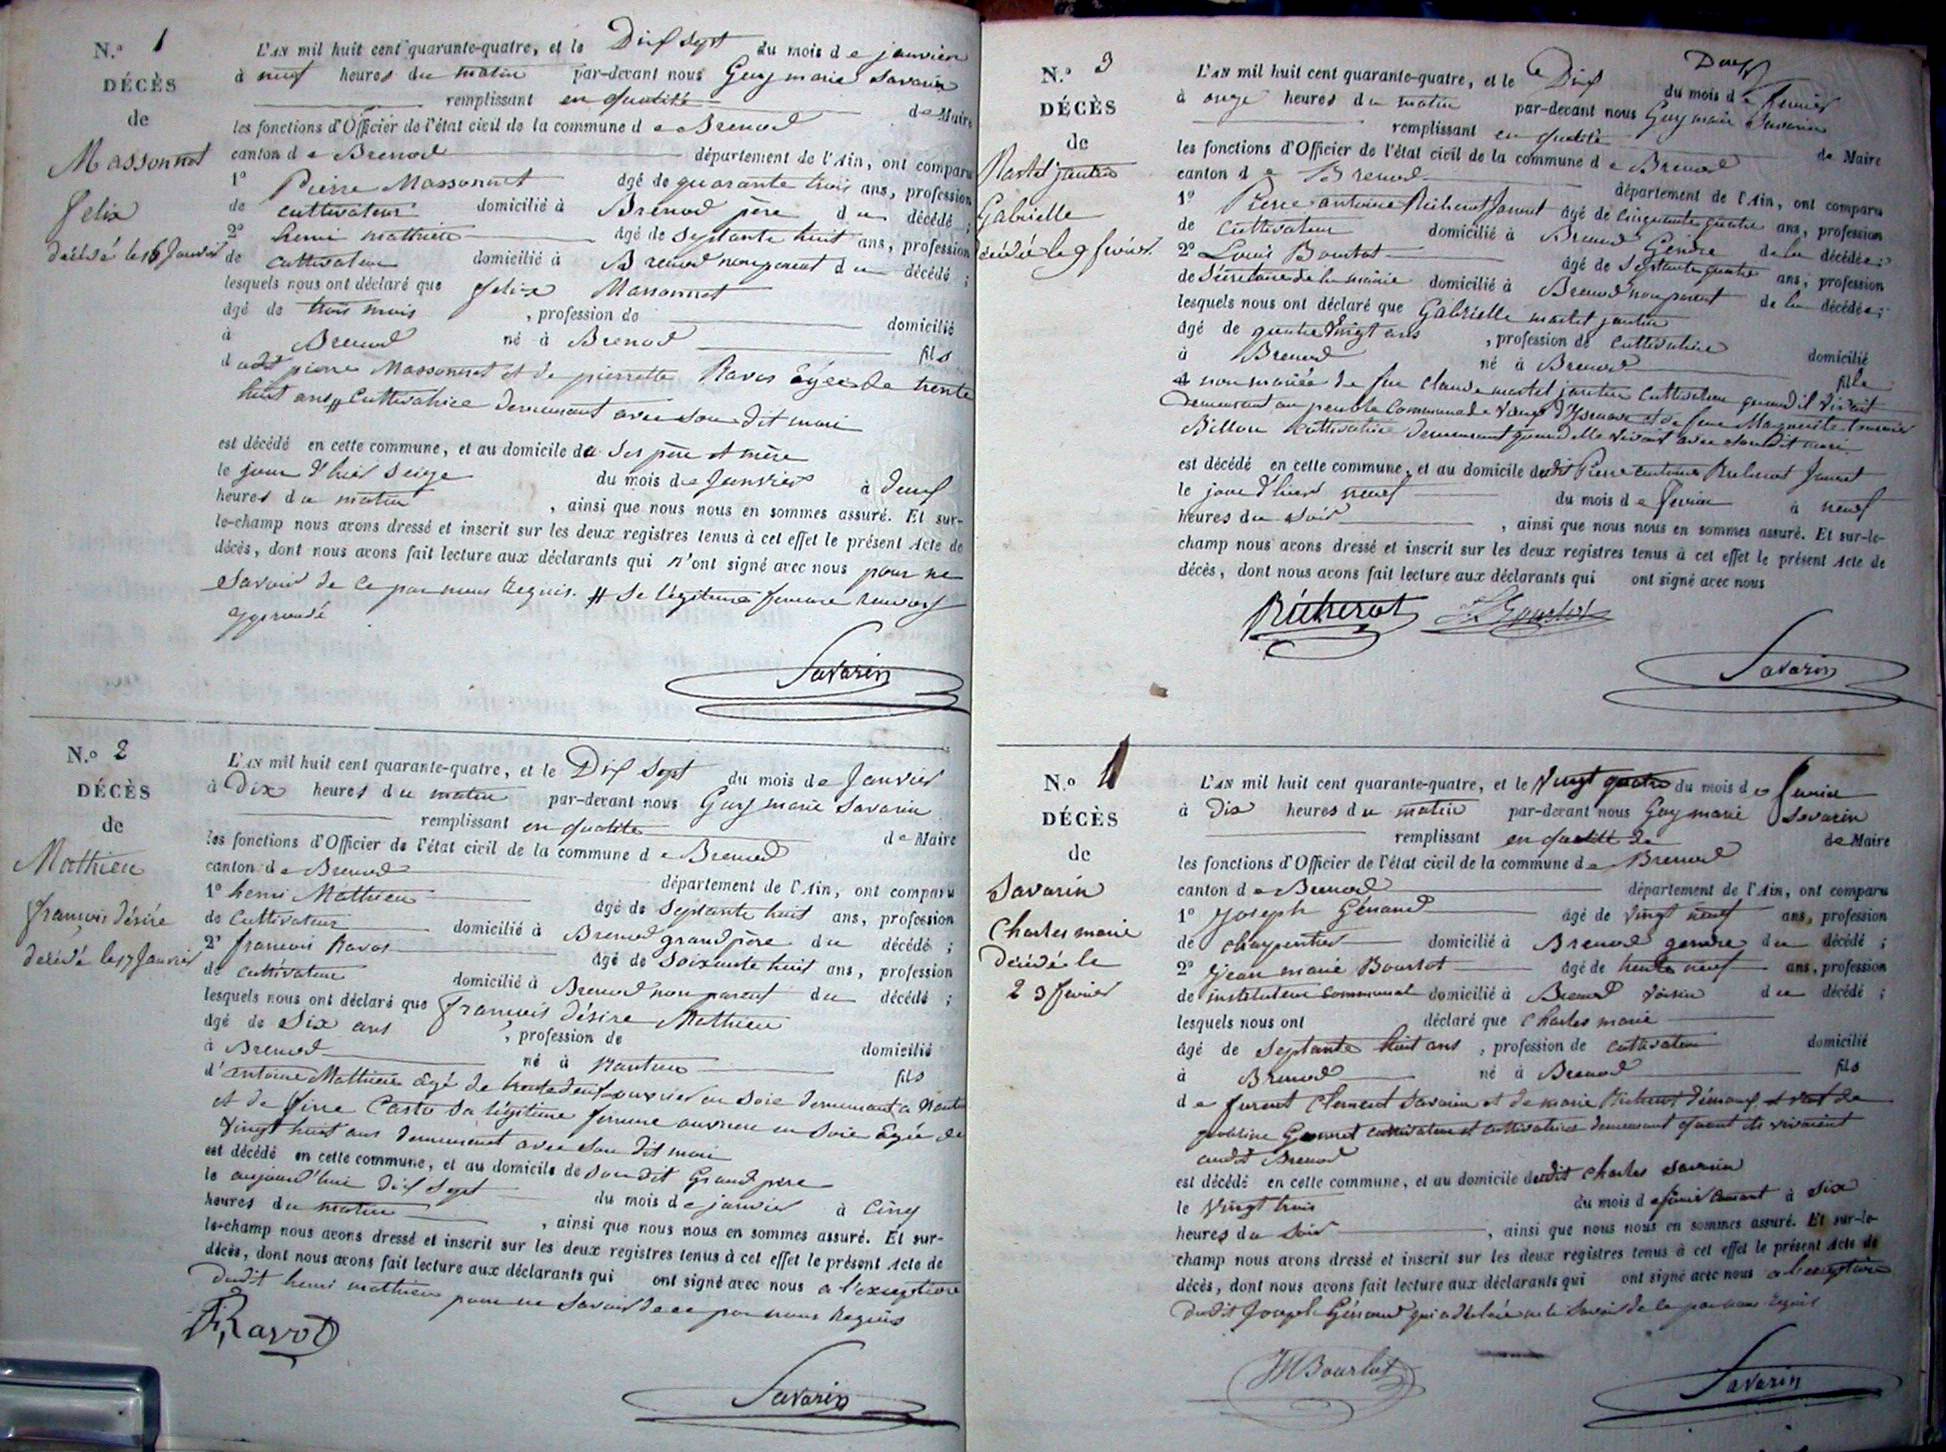 N.o 1
DÉCÈS
de
Massonnet
Felix
décédé le 16 Janvier
L'AN mil huit cent quarante-quatre, et le Dix sept du mois de janvier
à neuf heures du matin par-devant nous Guy marie Savarin
remplissant en qualité de Maire
les fonctions d'Officier de l'état civil de la commune de Brenod
canton de Brenod département de l'Ain, ont comparu
1o Pierre Massonnet âgé de quarante trois ans, profession
de cultivateur domicilié à Brenod père du décédé ;
2o henri mathieu âgé de septante huit ans, profession
de cultivateur domicilié à Brenod non parent du décédé ;
lesquels nous ont déclaré que felix Massonnet
âgé de trois mois , profession de domicilié
à Brenod né à Brenod fils
dudit pierre Massonnet et de pierrette Ravos âgée de trente
huit ans # cultivatrice demeurant avec son dit mari
est décédé en cette commune, et au domicile de ses père et mère
le jour d'hier seize du mois de Janvier à deux
heures du matin , ainsi que nous nous en sommes assuré. Et sur-
le-champ nous avons dressé et inscrit sur les deux registres tenus à cet effet le présent Acte de
décès, dont nous avons fait lecture aux déclarants qui n'ont signé avec nous pour ne
savoir de ce par nous requis. # Sa légitime femme renvoy
approuvé
Savarin
N.o 2
DÉCÈS
de
Mathieu
françois désiré
décédé le 17 Janvier
L'AN mil huit cent quarante-quatre, et le Dix sept du mois de Janvier
à Dix heures du matin par-devant nous Guy marie Savarin
remplissant en qualité de Maire
les fonctions d'Officier de l'état civil de la commune de Brenod
canton de Brenod département de l'Ain, ont comparu
1o henri Mathieu âgé de septante huit ans, profession
de cultivateur domicilié à Brenod grand père du décédé ;
2o francois Ravos âgé de soixante huit ans, profession
de cultivateur domicilié à Brenod non parent du décédé ;
lesquels nous ont déclaré que françois désiré Mathieu
âgé de Six ans , profession de domicilié
à Brenod né à Nantua fils
d'antoine Mathieu âgé de trente deux ouvrier en soie demeurant à Nantua
et de Casto sa légitime femme ouvrière en soie âgée de
Vingt huit ans demeurant avec son dit mari
est décédé en cette commune, et au domicile de son dit Grand père
le aujourd'hui dix sept du mois de janvier à cinq
heures du matin , ainsi que nous nous en sommes assuré. Et sur-
le-champ nous avons dressé et inscrit sur les deux registres tenus à cet effet le présent Acte de
décès, dont nous avons fait lecture aux déclarants qui ont signé avec nous à l'exception
dudit henri mathieu pour ne savoir de ce par nous requis
Ravot
Savarin
N.o 3
DÉCÈS
de
Martel jantin
Gabrielle
décédée le 9 février
L'AN mil huit cent quarante-quatre, et le Dix du mois de février
à onze heures du matin par-devant nous Guy marie Savarin
remplissant en qualité de Maire
les fonctions d'Officier de l'état civil de la commune de Brenod
canton de Brenod département de l'Ain, ont comparu
1o Pierre antoine Richerot Jannet âgé de cinquante quatre ans, profession
de cultivateur domicilié à Brenod Gendre de la décédée ;
2o Louis Bourlot âgé de septante quatre ans, profession
de Sécrétaire de la mairie domicilié à Brenod non parent de la décédée ;
lesquels nous ont déclaré que Gabrielle martel jantin
âgé de quatre Vingt ans , profession de cultivatrice domicilié
à Brenod né à Brenod fille
non mariée de feu claude martel jantin cultivateur quand il vivait
demeurant au commune de Vieux d'Izenave et de feue Marguerite
Billon cultivatrice demeurant quand elle vivait avec son dit mari
est décédé en cette commune, et au domicile dudit Pierre antoine Richerot Jannet
le jour d'hier neuf du mois de février à neuf
heures du soir , ainsi que nous nous en sommes assuré. Et sur-le-
champ nous avons dressé et inscrit sur les deux registres tenus à cet effet le présent Acte de
décès, dont nous avons fait lecture aux déclarants qui ont signé avec nous
Richerot L. Bourlot
Savarin
N.o 4
DÉCÈS
de
Savarin
Charles marie
décédé le
23 février
L'AN mil huit cent quarante-quatre, et le Vingt quatre du mois de février
à Dix heures du matin par-devant nous Guy marie Savarin
remplissant en qualité de de Maire
les fonctions d'Officier de l'état civil de la commune de Brenod
canton de Brenod département de l'Ain, ont comparu
1o Joseph Génand âgé de Vingt neuf ans, profession
de charpentier domicilié à Brenod gendre du décédé ;
2o Jean marie Bourlot âgé de trente neuf ans, profession
de instituteur communal domicilié à Brenod Voisin du décédé ;
lesquels nous ont déclaré que Charles marie
âgé de Septante huit ans , profession de cultivateur domicilié
à Brenod né à Brenod fils
de furent Clement Savarin et de marie
cultivateur et cultivatrice demeurant quand ils vivaient
audit Brenod
est décédé en cette commune, et au domicile dudit Charles Savarin
le Vingt trois du mois de février courant à Six
heures du Soir , ainsi que nous nous en sommes assuré. Et sur-le-
champ nous avons dressé et inscrit sur les deux registres tenus à cet effet le présent Acte de
décès, dont nous avons fait lecture aux déclarants qui ont signé avec nous à l'exception
dudit Joseph Génand qui a déclaré ne le savoir de ce par nous requis
JM Bourlot
Savarin